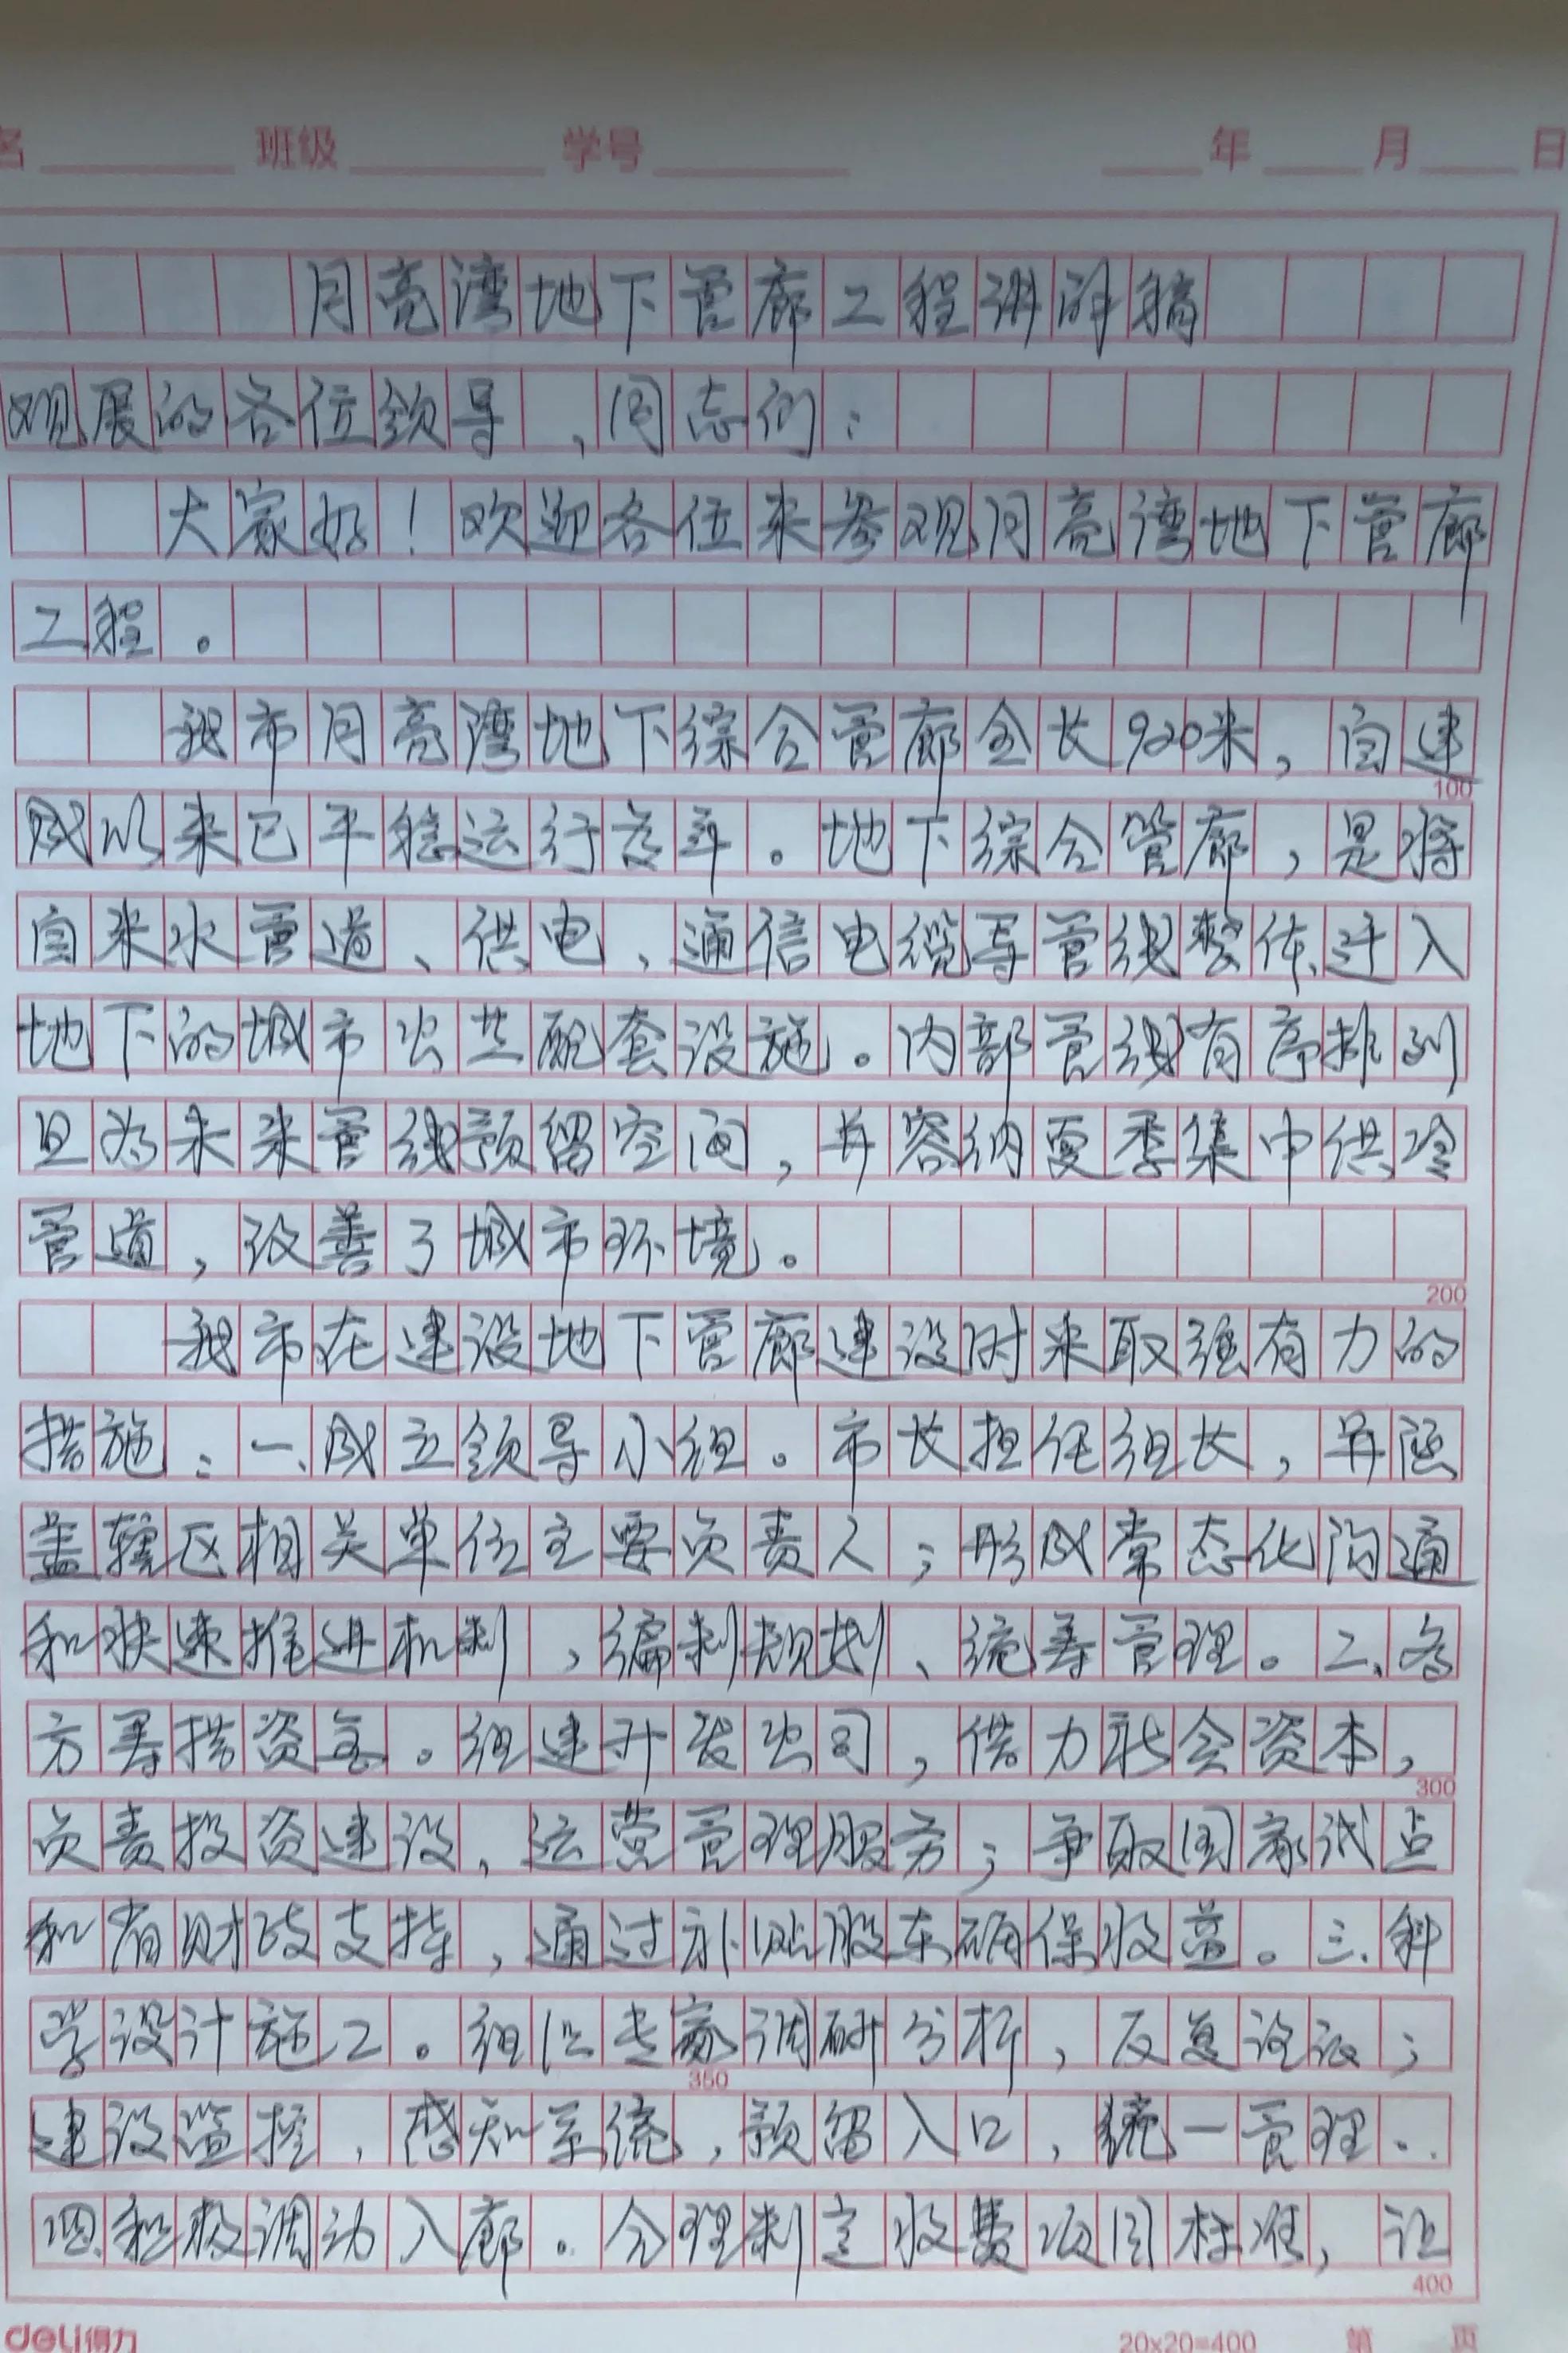 名 班级 学号 年 月 日
月亮湾地下管廊工程讲解稿
观展的各位领导,同志们:
大家好!欢迎各位来参观月亮湾地下管廊
工程。
我市月亮湾地下综合管廊全长920米,自建
100
成以来已平稳运行多年。地下综合管廊,是将
自来水管道、供电、通信电缆等管线整体迁入
地下的城市公共配套设施。内部管线有序排列
且为未来管线预留空间,并容纳夏季集中供冷
管道,改善了城市环境。
200
我市在建设地下管廊建设时采取强有力的
措施:一、成立领导小组。市长担任组长,并涵
盖辖区相关单位主要负责人;形成常态化沟通
和快速推进机制,编制规划、统筹管理。二、多
方筹措资金。组建开发公司,借力社会资本,
300
负责投资建设、运营管理服务;争取国家试点
和省财政支持,通过补贴股东确保收益。三、科
学设计施工。组织专家调研分析,反复论证;
350
建设监控、感知系统,预留入口,统一管理。
四、积极调动入廊。合理制定收费项目标准,让
400
deli得力 20x20=400 第 页